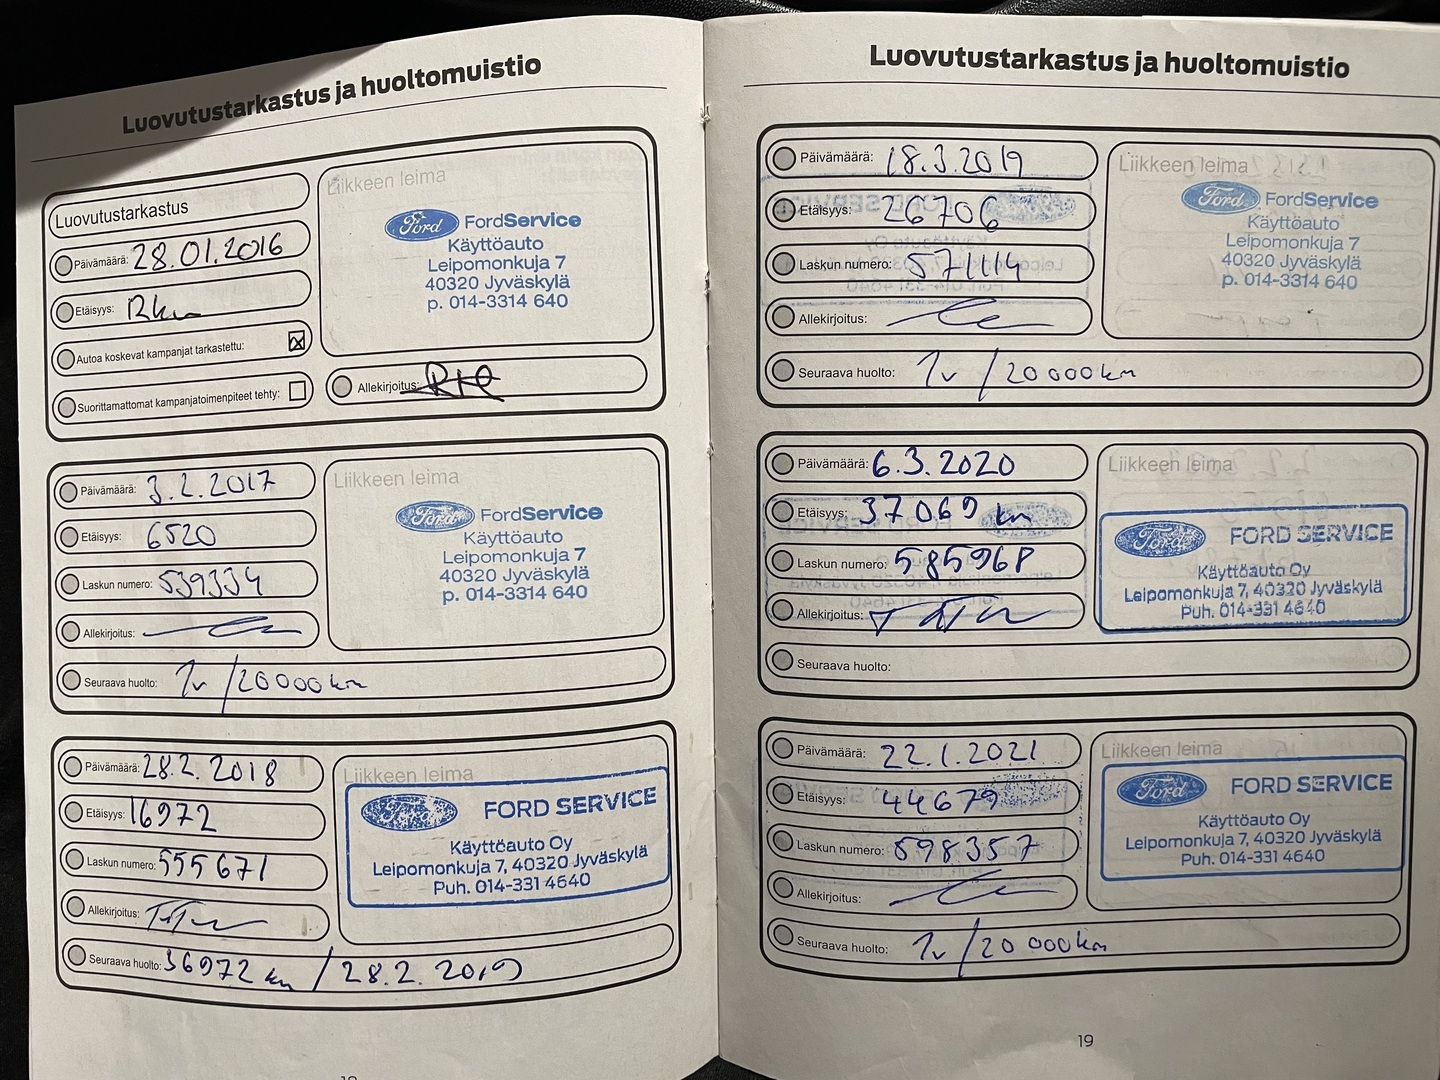 Luovutustarkastus ja huoltomuistio
Luovutustarkastus
Päivämäärä: 28.01.2016
Etäisyys: 12km
Autoa koskevat kampanjat tarkastettu:
Suorittamattomat kampanjatoimenpiteet tehty:
Liikkeen leima
Ford FordService
Käyttöauto
Leipomonkuja 7
40320 Jyväskylä
p. 014-3314 640
Allekirjoitus:
Päivämäärä: 3.2.2017
Etäisyys: 6520
Laskun numero: 539334
Allekirjoitus:
Seuraava huolto: 1v / 20000km
Liikkeen leima
Ford FordService
Käyttöauto
Leipomonkuja 7
40320 Jyväskylä
p. 014-3314 640
Päivämäärä: 28.2.2018
Etäisyys: 16972
Laskun numero: 555671
Allekirjoitus:
Seuraava huolto: 36972 km / 28.2.2019
Liikkeen leima
Ford FORD SERVICE
Käyttöauto Oy
Leipomonkuja 7, 40320 Jyväskylä
Puh. 014-331 4640
Luovutustarkastus ja huoltomuistio
Päivämäärä: 18.3.2019
Etäisyys: 26706
Laskun numero: 571114
Allekirjoitus:
Seuraava huolto: 1v / 20000km
Liikkeen leima
Ford FordService
Käyttöauto
Leipomonkuja 7
40320 Jyväskylä
p. 014-3314 640
Päivämäärä: 6.3.2020
Etäisyys: 37069 km
Laskun numero: 585968
Allekirjoitus:
Seuraava huolto:
Liikkeen leima
Ford FORD SERVICE
Käyttöauto Oy
Leipomonkuja 7, 40320 Jyväskylä
Puh. 014-331 4640
Päivämäärä: 22.1.2021
Etäisyys: 44679
Laskun numero: 598357
Allekirjoitus:
Seuraava huolto: 1v / 20 000km
Liikkeen leima
Ford FORD SERVICE
Käyttöauto Oy
Leipomonkuja 7, 40320 Jyväskylä
Puh. 014-331 4640
19